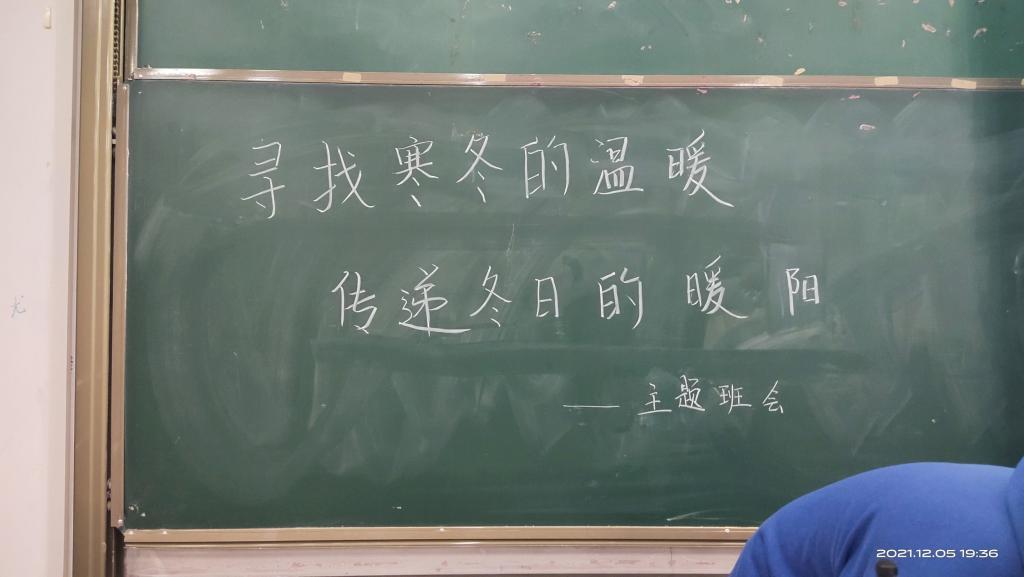 寻找寒冬的温暖
传递冬日的暖阳
——主题班会
2021.12.05 19:36